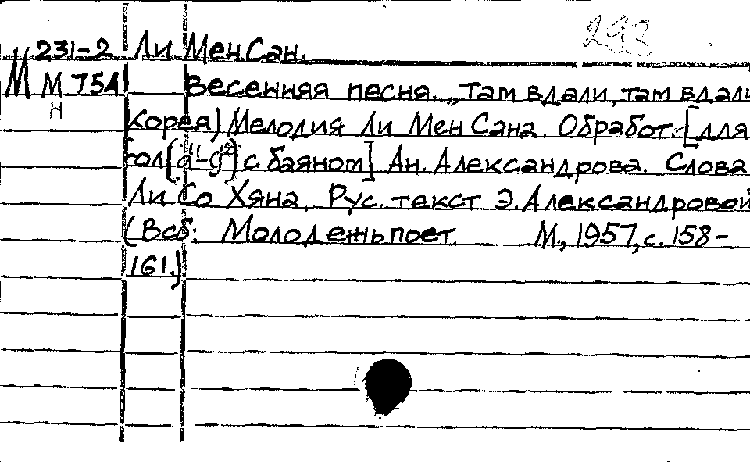 293
231-2 Ли Мен Сан.
М М 75А Весенняя песня. „Там вдали, там вдали
Н Корея) Мелодия Ли Мен Сана. Обработ. [для
гол[d¹-g²] с баяном] Ан. Александрова. Слова
Ли Со Хяна. Рус. текст Э. Александровой
(В сб: Молодежь поет М, 1957, с. 158-
161.)